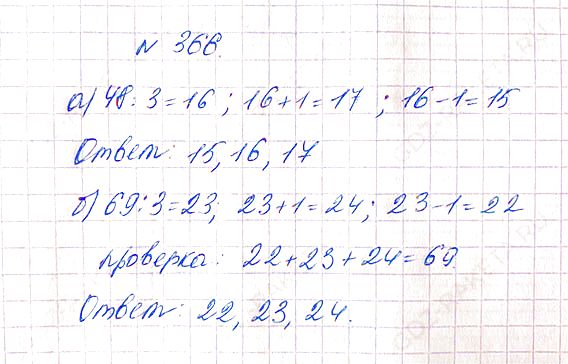 N 366.
а) 48 : 3 = 16 ; 16 + 1 = 17 ; 16 - 1 = 15
Ответ: 15, 16, 17
б) 69 : 3 = 23; 23 + 1 = 24; 23 - 1 = 22
проверка: 22 + 23 + 24 = 69.
Ответ: 22, 23, 24.